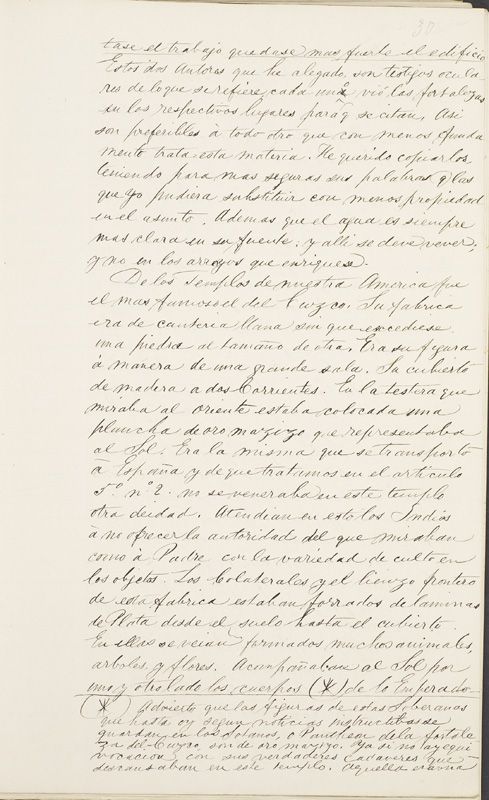 30
tase el trabajo quedase mas fuerte el edificio
Estos dos Autores que he alegado, son testigos ocula
res de loque se refiere, cada uno vió las fortalezas
en los respectivos lugares para q̃ se citan, Asi
son preferibles à todo otro que con menos funda
mento trata esta materia. He querido copiarlos
teniendo para mas seguras sus palabras q̃ las
que Yo pudiera substituir con menos propiedad
en el asunto. Ademas que el agua es siempre
mas clara en su fuente, y alli se deve vever,
y no en los arroyos que enriquese.
De los Templos de nuestra America fue
el mas famoso el del Cuzco. Su fabrica
era de canteria llana sin que excediese
una piedra al tamaño de otra. Era su figura
à manera de una grande sala. Su cubierto
de madera a dos Corrientes. En la testera que
miraba al oriente estaba colocada una
plancha de oro mazizo que representaba
al Sol. Era la misma que se transportó
à España y de que tratamos en el articulo
5º nº 2. no se veneraba en este templo
otra deidad. Atendian en esto los Indios
à no ofrecer la autoridad del que miraban
como à Padre con la variedad de culto en
los objetos. Los Colaterales y el lienzo frontero
de esta fabrica estaban forrados de laminas
de Plata desde el suelo hasta el cubierto.
En ellas se veian formados muchos animales,
arboles, y flores. Acompañaban al Sol por
uno y otro lado los cuerpos (*) de lo Emperado
(*) Advierto que las figuras de estas Soberanas
que hasta oy segun noticias instructibas se
guardan en los Sotanos, o Pantheon de la fortale
za del Cuzco, son de oro mazizo. Ya si no ay equi
vocacion con sus verdaderos Cadaveres que
descansaban en este templo. Aquella era una